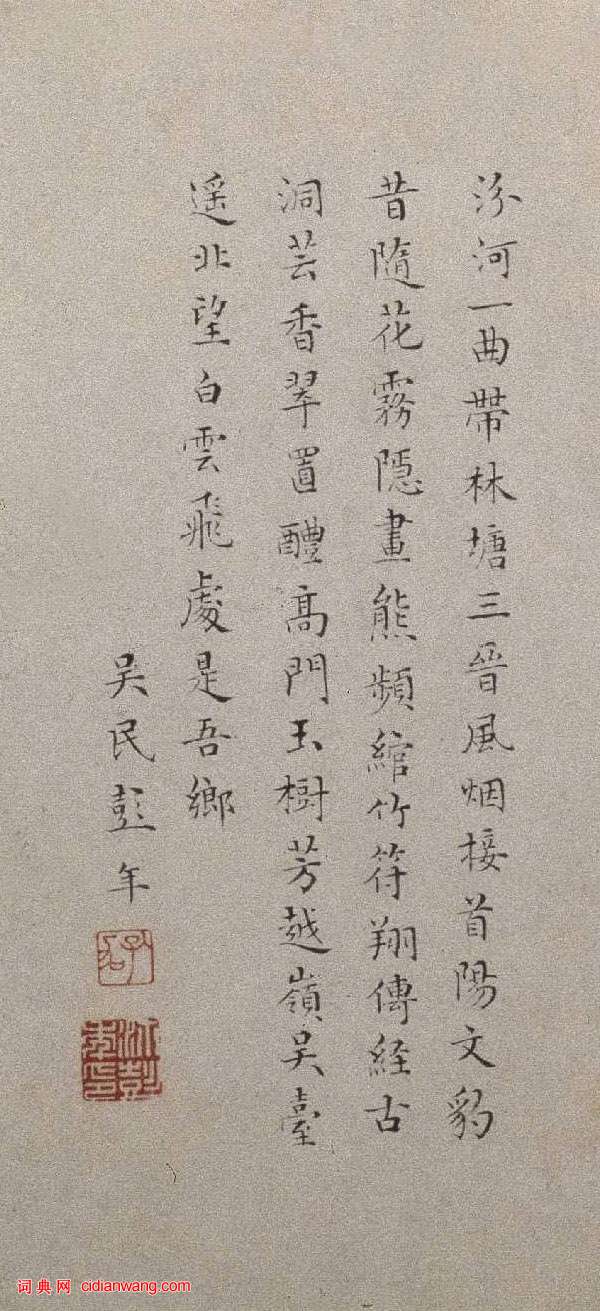 汾河一曲帶林塘三晉風烟接首陽文豹
昔隨花霧隱畫熊頻綰竹符翔傳經古
洞芸香翠置醴高門玉樹芳越嶺吳臺
遥北望白雲飛處是吾鄉
吳民彭年
词典网 cidianwang.com